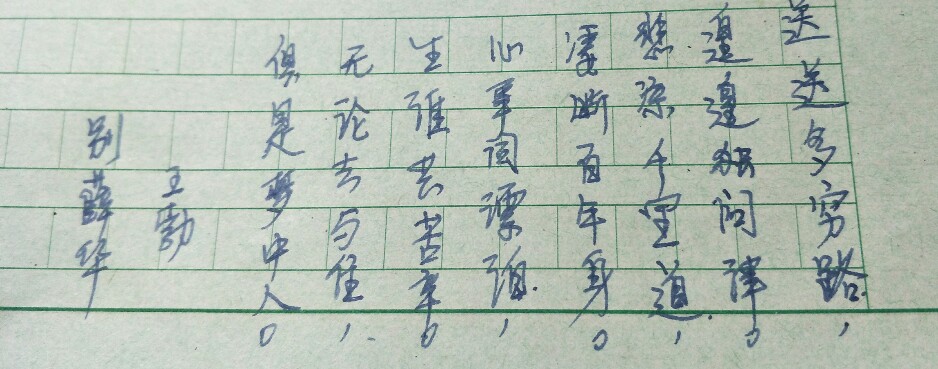 送送多穷路，
遑遑独问津。
悲凉千里道，
凄断百年身。
心事同漂泊，
生涯共苦辛。
无论去与住，
俱是梦中人。
王勃
别薛华